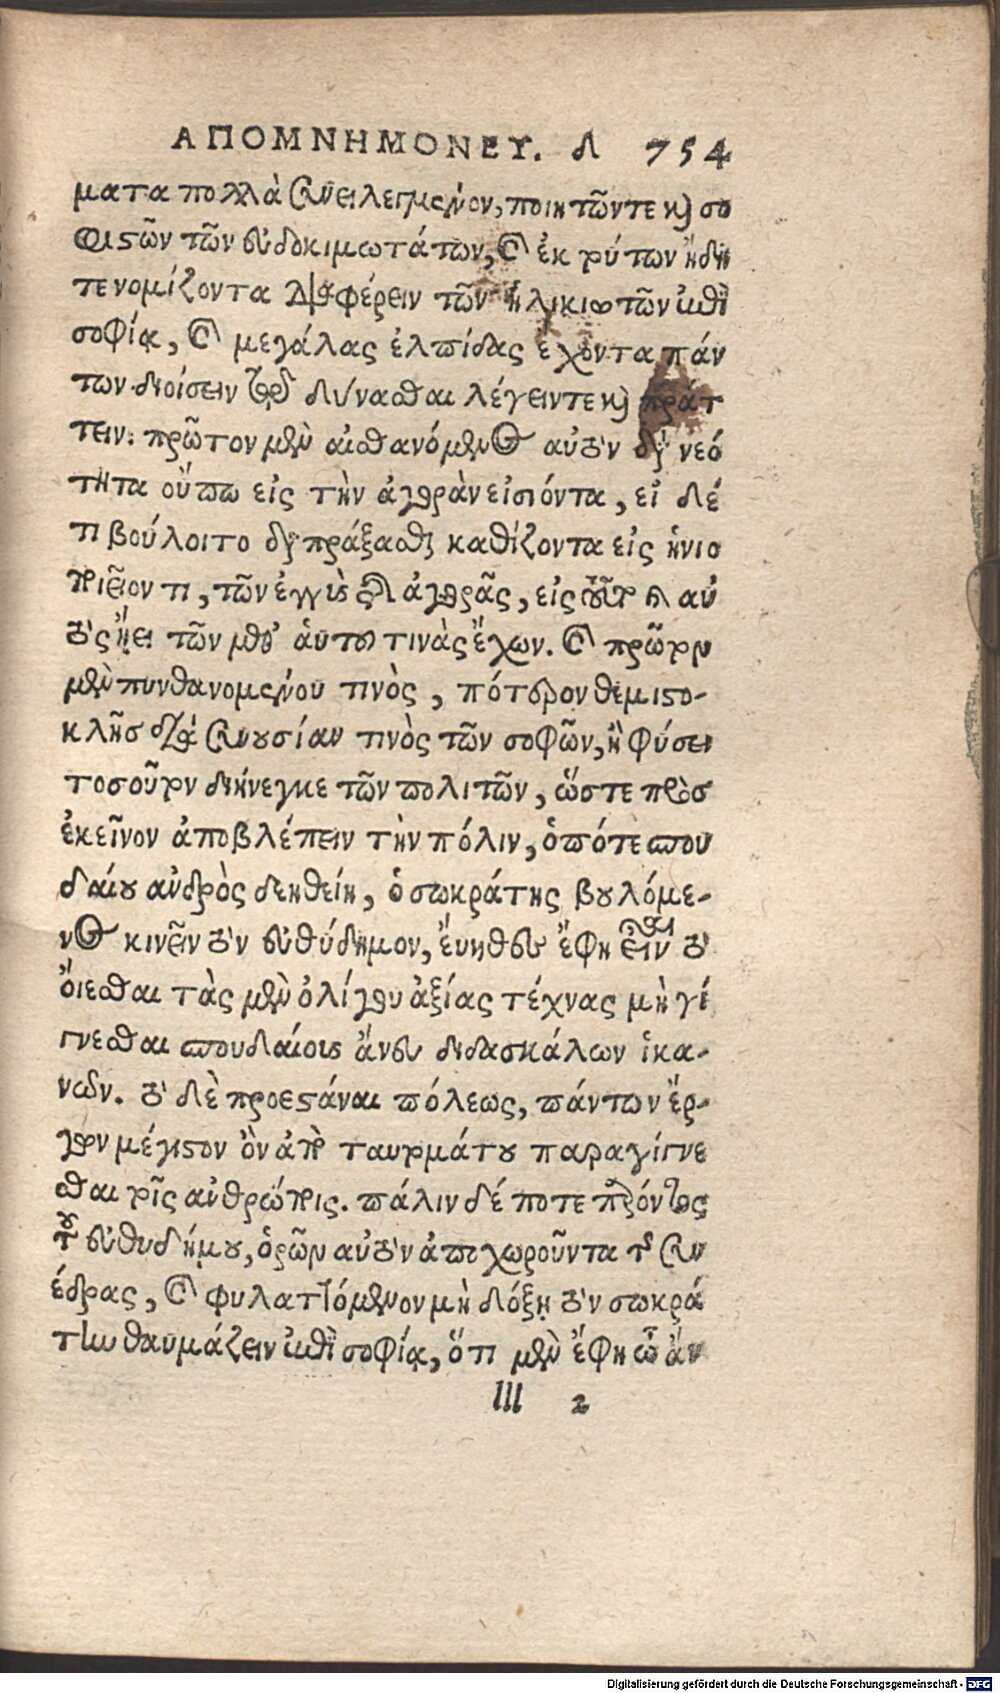 ΑΠΟΜΝΗΜΟΝΕΥ. Δ 754
ματα πολλὰ συνειλεγμένον, ποιητῶν τε καὶ σο
φιστῶν τῶν εὐδοκιμωτάτων, καὶ ἐκ τούτων ἤδη
τε νομίζοντα διαφέρειν τῶν ἡλικιωτῶν ἐπὶ
σοφίᾳ, καὶ μεγάλας ἐλπίδας ἔχοντα πάν
των διοίσειν τῷ δύνασθαι λέγειν τε καὶ πράτ
τειν: πρῶτον μὲν αἰσθανόμενος αὐτὸν διὰ νεό
τητα οὔπω εἰς τὴν ἀγορὰν εἰσιόντα, εἰ δέ
τι βούλοιτο διαπράξασθαι καθίζοντα εἰς ἡνιο
ποιεῖόν τι, τῶν ἐγγὺς τῆς ἀγορᾶς, εἰς τοῦτο καὶ αὐ
τὸς ᾔει τῶν μεθ' αὑτοῦ τινὰς ἔχων. καὶ πρῶτον
μὲν πυνθανομένου τινὸς, πότερον θεμιστο-
κλῆς διὰ συνουσίαν τινὸς τῶν σοφῶν, ἢ φύσει
τοσοῦτον διήνεγκε τῶν πολιτῶν, ὥστε πρὸς
ἐκεῖνον ἀποβλέπειν τὴν πόλιν, ὁπότε σπου
δαίου ἀνδρὸς δεηθείη, ὁ σωκράτης βουλόμε-
νος κινεῖν τὸν εὐθύδημον, εὔηθες ἔφη εἶναι τὸ
οἴεσθαι τὰς μὲν ὀλίγου ἀξίας τέχνας μὴ γί
γνεσθαι σπουδαίοις ἄνευ διδασκάλων ἱκα-
νῶν. τὸ δὲ προεστάναι πόλεως, πάντων ἔρ-
γων μέγιστον ὂν ἀπὸ ταυτομάτου παραγίγνε
σθαι τοῖς ἀνθρώποις. πάλιν δέ ποτε παρόντος
τοῦ εὐθυδήμου, ὁρῶν αὐτὸν ἀποχωροῦντα τῆς συν
έδρας, καὶ φυλαττόμενον μὴ δόξῃ τὸν σωκρά
την θαυμάζειν ἐπὶ σοφίᾳ, ὅτι μὲν ἔφη ὦ ἄν
lll 2
Digitalisierung gefördert durch die Deutsche Forschungsgemeinschaft - DFG